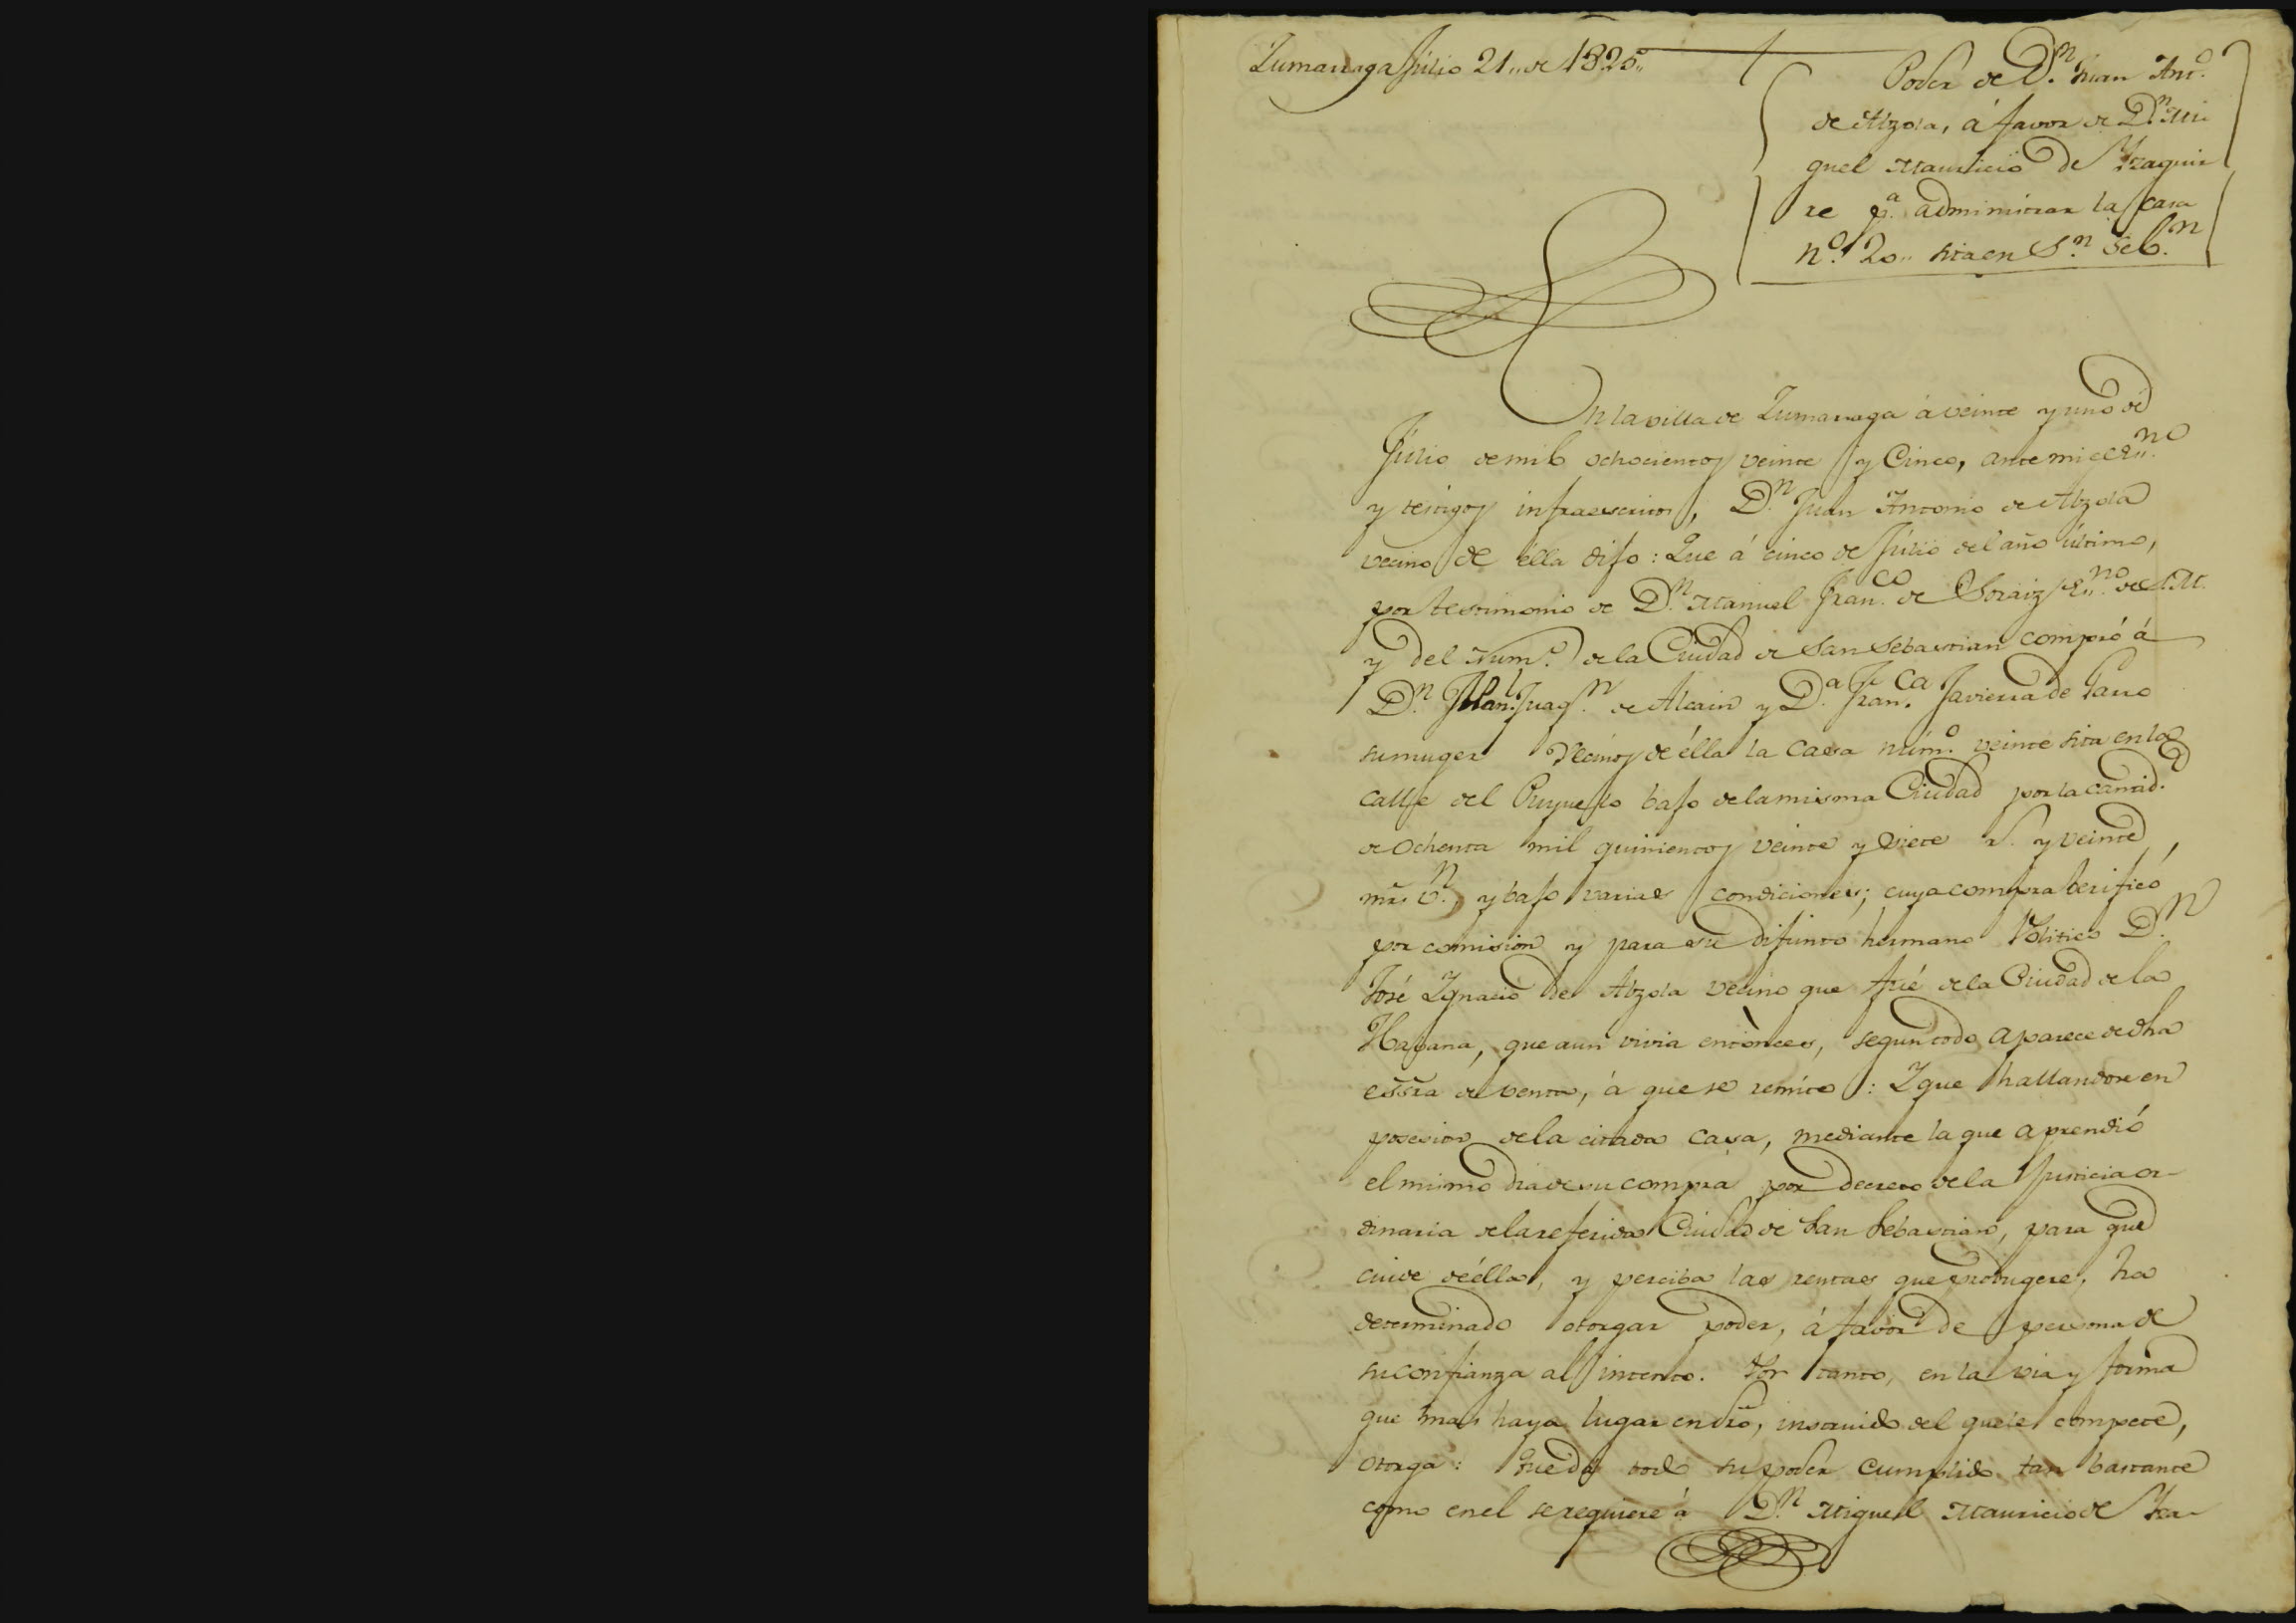 Zumarraga Júlio 21,, de 1825,,
Poder de D.n Juan Ant.o
de Alzola, á favor de D.n Mi-
guel Mauricio de Yzaguir
re p.a administrar la casa
n.o 20,, sita en S.n Seb.n
En la villa de Zumarraga á veinte y uno de
Júlio de mil ochocientos veinte y Cinco, ante mi el Es.no
y testigos infraescritos, D.n Juan Antonio de Alzola
vecino de élla dijo: Que á cinco de Júlio del año último,
por testimonio de D.n Manuel Fran.co de Soraiz Es.no de S.M.
y del Num.o de la Ciudad de San Sebastian compró á
D.n Juaq.n de Alcain y D.a Fran.ca Javiera de Larre
su muger vecinos de élla la Casa núm.o veinte sita en la
calle del Puyuelo bajo de la misma Ciudad por la cantid.d
de Ochenta mil quinientos veinte y siete r.s y veinte
mrs v.n, y bajo varias condiciones; cuya compra berificó
por comision y para su difunto hermano Político D.n
José Ygnacio de Alzola vecino que fué de la Ciudad de la
Havana, que aun vivia entònces, segun todo aparece de dha
essra de venta, á que se remite: Y que hallandose en
posesion de la citada casa, mediante la que aprendió
el mismo dia de su compra por decreto de la Justicia or-
dinaria de la referida Ciudad de San Sebastian, para que
cuide de élla, y perciba las rentas que produgere, ha
determinado otorgar poder, á favor de persona de
su confianza al intento. Por tanto, en la via y forma
que mas haya lugar en dro, instruido del que le compete,
otorga: Que da todo su poder cumplido tan bastante
como en el se requiere á D.n Miguel Mauricio de Yza-